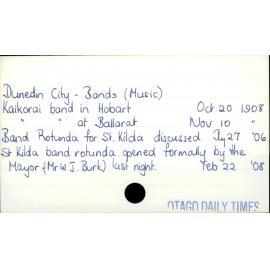 Dunedin City - Bands (Music)
Kaikorai band in Hobart Oct 20 1908
" " at Ballarat Nov 10 "
Band Rotunda for St. Kilda discussed Jy 27 '06
St Kilda band rotunda opened formally by the
Mayor (Mr W J. Burk) last night. Feb 22 '08
OTAGO DAILY TIMES